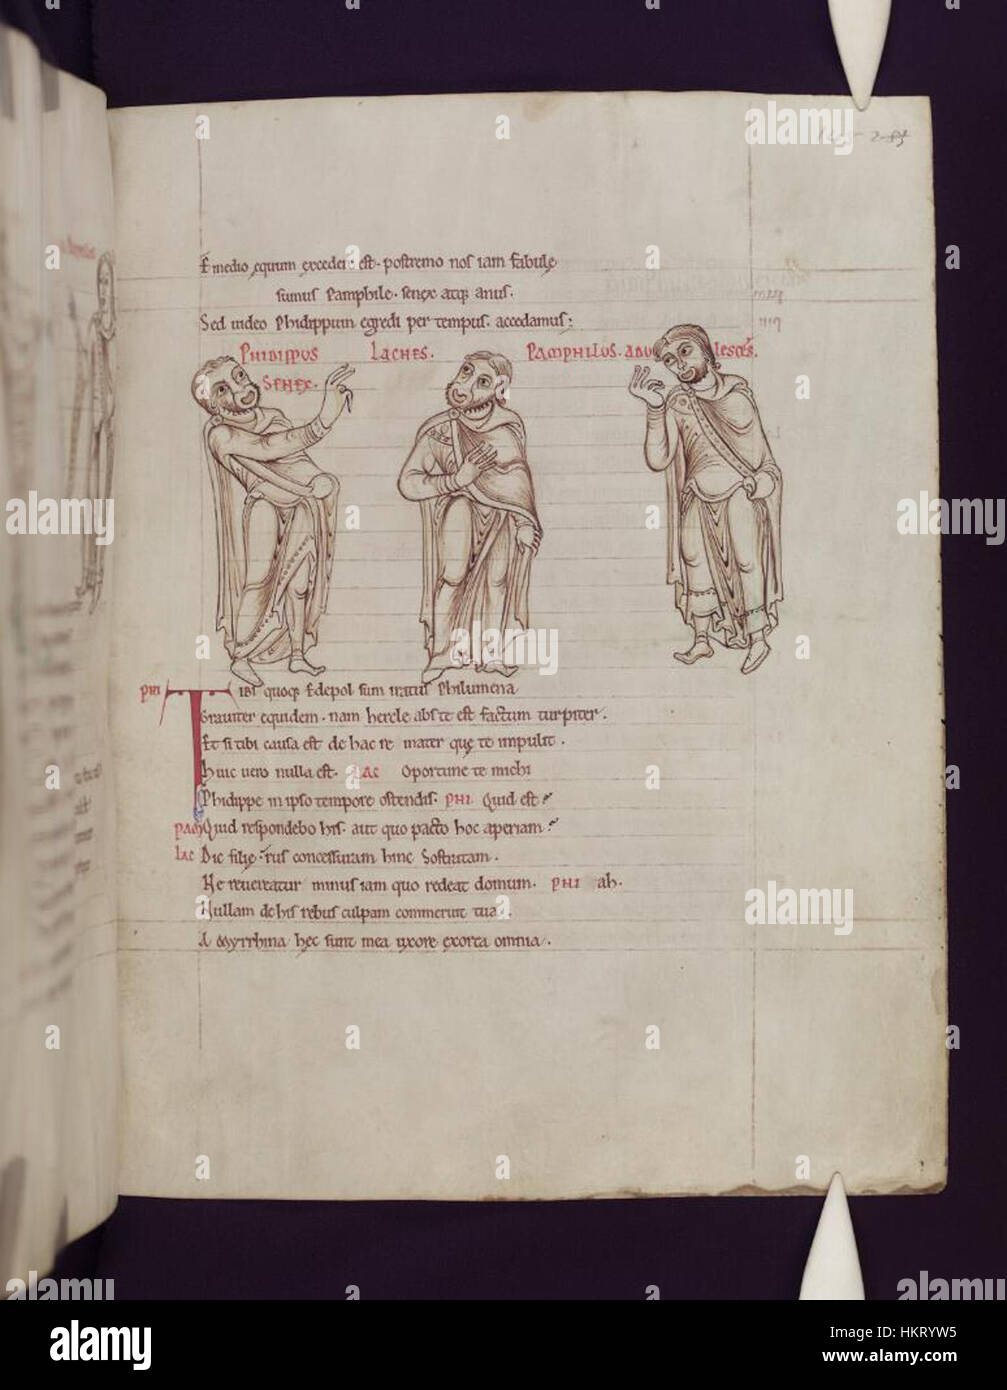 E medio equum excedere est. postremo nos iam fabule
sumus Pamphile. senex atq; anus.
Sed uideo Phidippum egredi per tempus. accedamus:
PHIDIPPUS LACHES. PAMPHILUS. ADULESCES.
SENEX.
PHI Tibi quoq; Edepol sum iratus Philumena
Grauiter equidem. nam hercle abs te est factum turpiter.
Et si tibi causa est de hac re mater que te impulit.
Huic uero nulla est. LAC Oportune te michi
Phidippe in ipso tempore ostendis. PHI Quid est?
PAM Quid respondebo his. aut quo pacto hoc aperiam?
LAC Dic filie. rus concessuram hinc Sostratam.
Ne reuereatur minus iam quo redeat domum. PHI ah.
Nullam de his rebus culpam commeruit tua.
A Myrrhina hec sunt mea uxore exorta omnia.
alamy
Image ID: HKRYW5
www.alamy.com